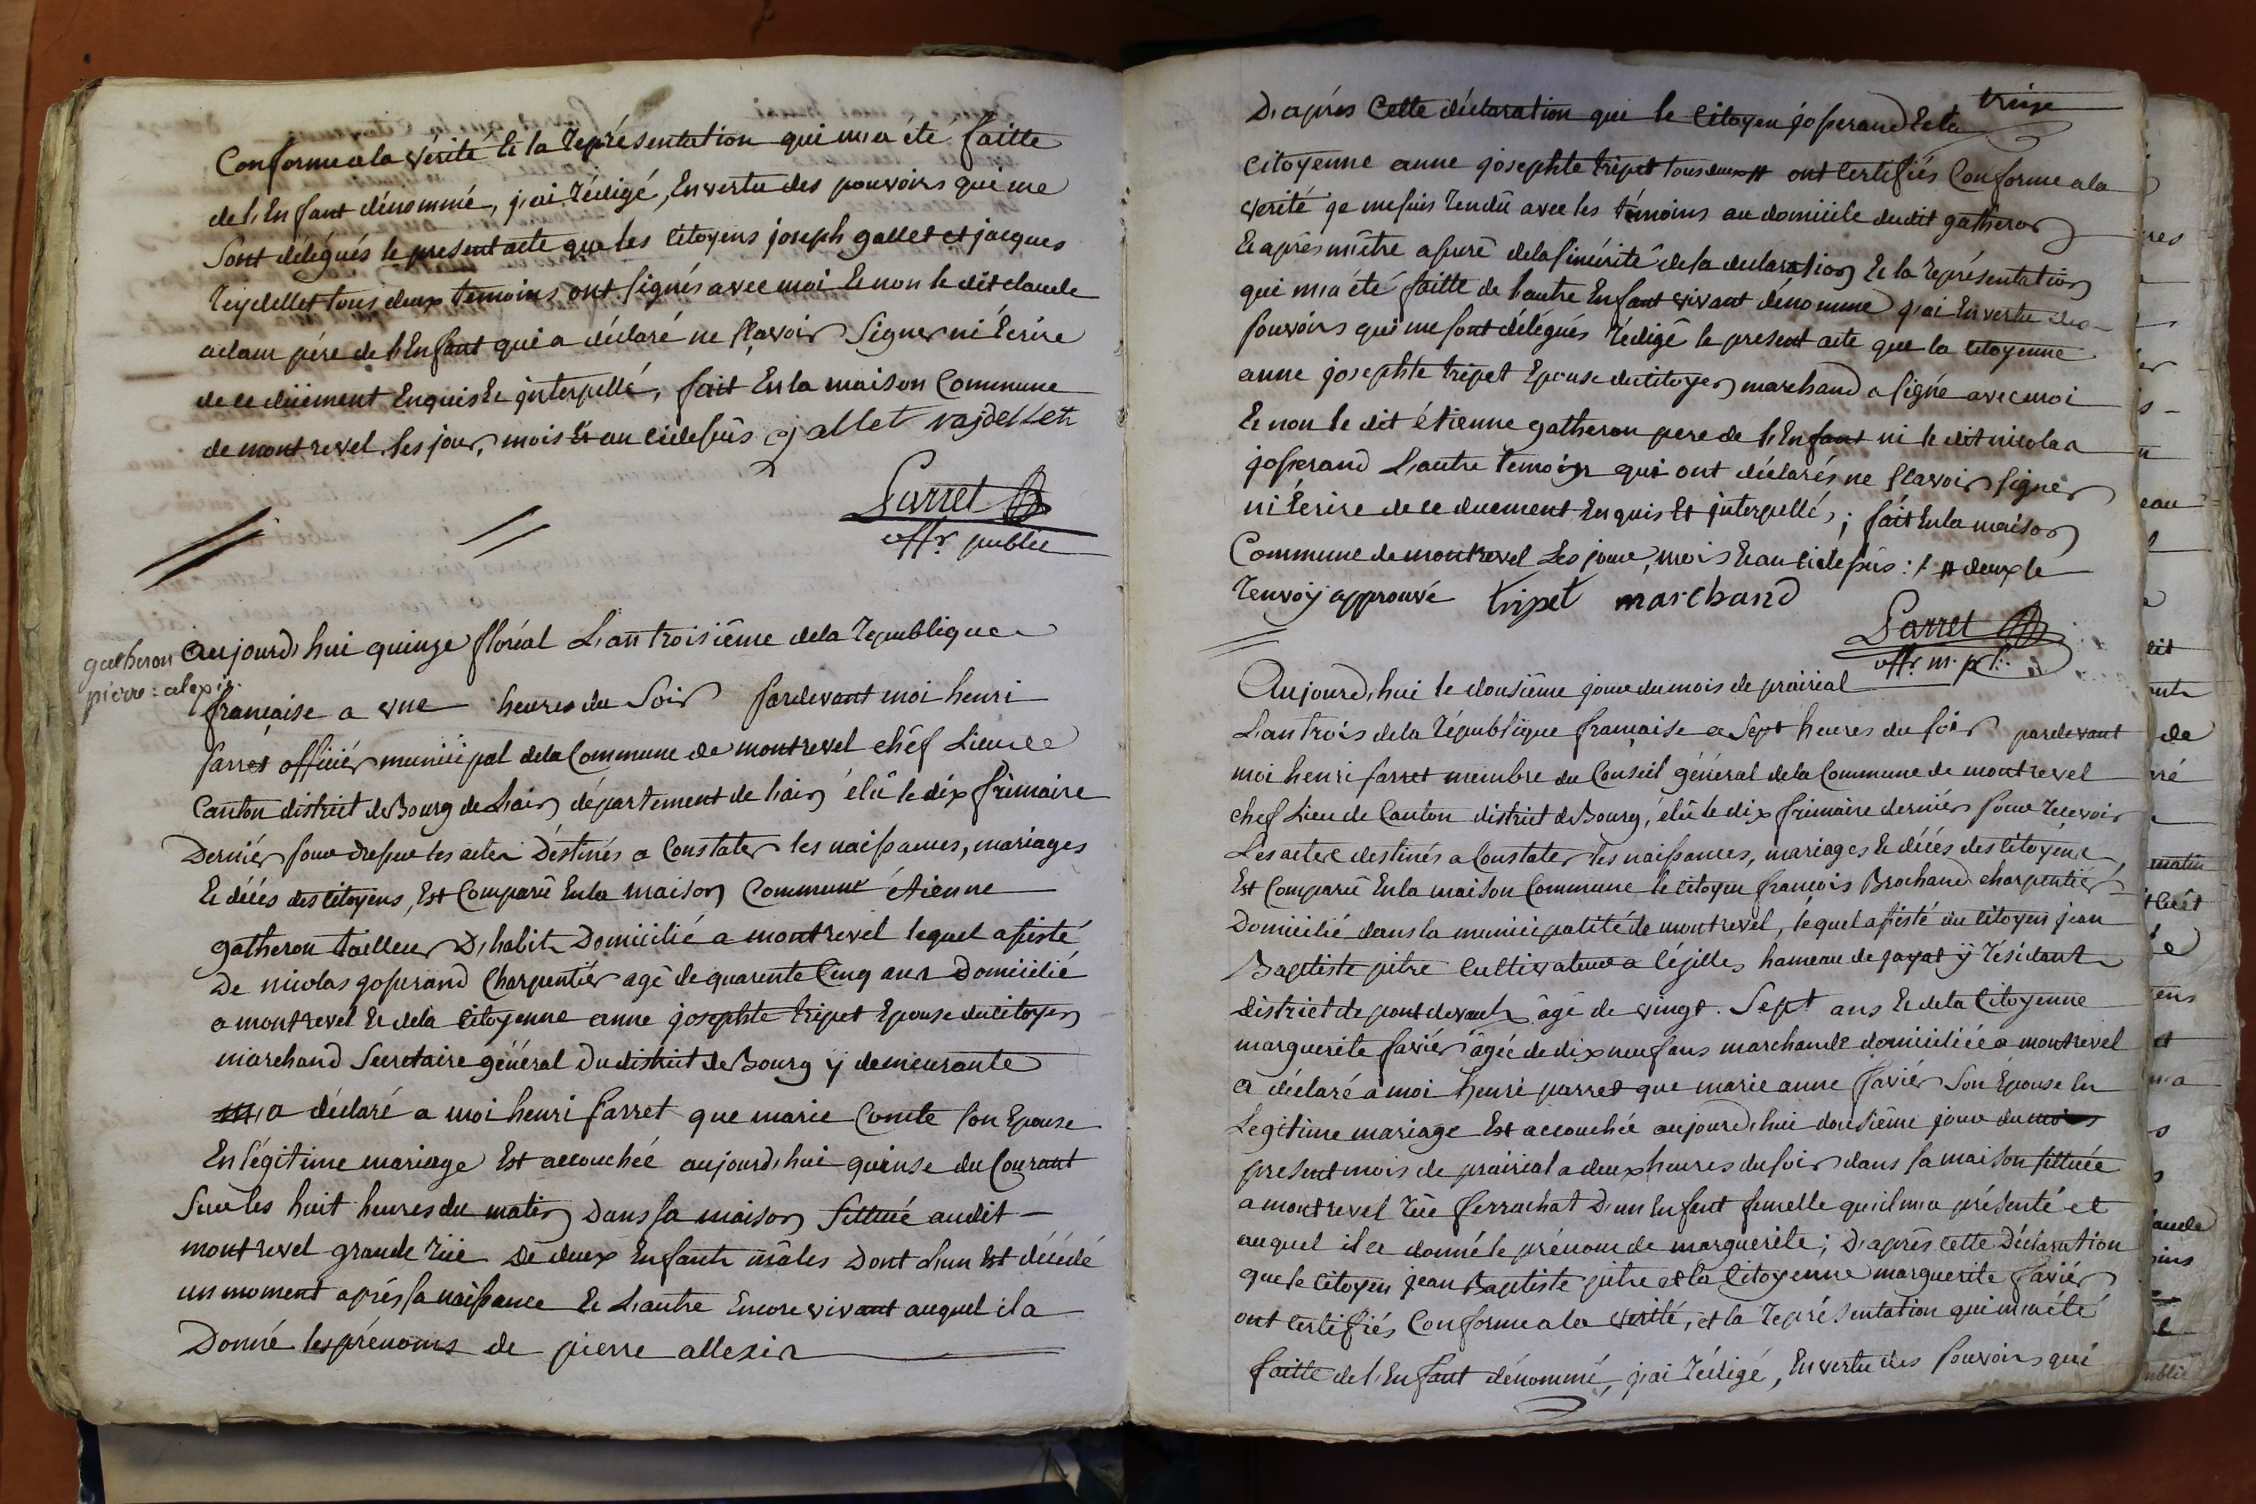 Conforme a la vérité Et la représentation qui m'a été faitte
de l'Enfant dénommé, j'ai rédigé, En vertu des pouvoirs qui me
Sont délégués le present acte que les Citoyens joseph gallet et jacques
Reydellet tous deux temoins ont signés avec moi Et non le dit claude
adam pére de l'Enfant qui a déclaré ne sçavoir Signer ni Ecrire
de ce düement Enquis Et interpellé, fait En la maison Commune
de montrevel les jour, mois Et an cidessus gallet
Parret
offr. public
gatheron
pierre : alexis.
Aujourd'hui quinze floréal L'an troisiême de la republique
française a une heures du Soir pardevant moi henri
parret officiér municipal de la Commune de montrevel chêf Lieu de
Canton district de Bourg de L'ain département de l'ain élû le dix frimaire
Derniér pour dresser les actes Déstinés a Constater les naissances, mariages
Et décés des Citoyens, Est Comparû En la maison Commune étienne
gatheron tailleur D'habit Domicilié a montrevel lequel assisté
De nicolas josserand Charpentiér agé de quarente Cinq ans Domicilié
a montrevel Et de la Citoyenne anne josephte tripet Epouse du Citoyen
marchand Secretaire général Du district de Bourg ÿ demeurante
m'a déclaré a moi henri parret que marie Comte son Epouse
En légitime mariage Est accouchée aujourd'hui quinse du Courant
Sur les huit heures du matin Dans sa maison Sittuée audit
montrevel grande rüe De deux Enfants mâles Dont l'un Est décédé
un moment aprés sa naissance Et L'autre Encore vivant auquel il a
Donné les prénoms de pierre allexis
treize
D'aprés Cette déclaration que le Citoyen josserand Et la
Citoyenne anne josephte tripet tous deux # ont Certifiés Conforme a la
verité je me suis rendû avec les témoins au domicile dudit gatheron
Et aprés m'être assuré de la sincérité de sa declaration Et la représentation
qui m'a été faitte de l'autre Enfant vivant dénommé j'ai En vertu des
pouvoirs qui me sont délégués rédigé le present acte que la Citoyenne
anne josephte tripet Epouse du Citoyen marchand a signé avec moi
Et non le dit étienne gatheron pere de l'Enfant ni le dit nicolas
josserand L'autre temoin qui ont déclarés ne sçavoir signer
ni Ecrire de ce duement Enquis Et interpellé ; fait En la maison
Commune de montrevel Les jour, mois Et an cidessus : # deux le
renvoÿ approuvé tripet marchand
Parret
offr. m. pl.
Aujourd'hui le dousiême jour du mois de prairial
L'an trois de la république française a Sept heures du soir pardevant
moi henri parret membre du Conseil général de la Commune de montrevel
chef Lieu de Canton district de Bourg, élû le dix frimaire derniér pour recevoir
Les actes destinés a Constater les naissances, mariages Et décés des Citoyens,
Est Comparû En la maison Commune le Citoyen françois Brochand charpentiér
Domicilié dans la municipalité de montrevel, lequel assisté du Citoyen jean
Baptiste pitre Cultivateur a hameau de jayat ÿ résidant
district de pontdevaux âgé de vingt. Sept ans Et de la Citoyenne
marguerite faviér âgée de dix neuf ans marchande domiciliée a montrevel
a déclaré a moi henri parret que marie anne favier Son Epouse En
Légitime mariage Est accouchée aujourd'hui dousiême jour du mois
present mois de prairial a deux heures du soir dans sa maison sittuée
a montrevel rüe ferrachat D'un Enfant femelle qu'il m'a présenté et
auquel il a donné le prénom de marguerite ; D'aprés cette Déclaration
que le Citoyen jean Baptiste pitre et la Citoyenne marguerite favier
ont certifiés Conforme a la verité, et la représentation qui m'a été
faitte de l'Enfant dénommé, j'ai rédigé, En vertu des pouvoirs qui